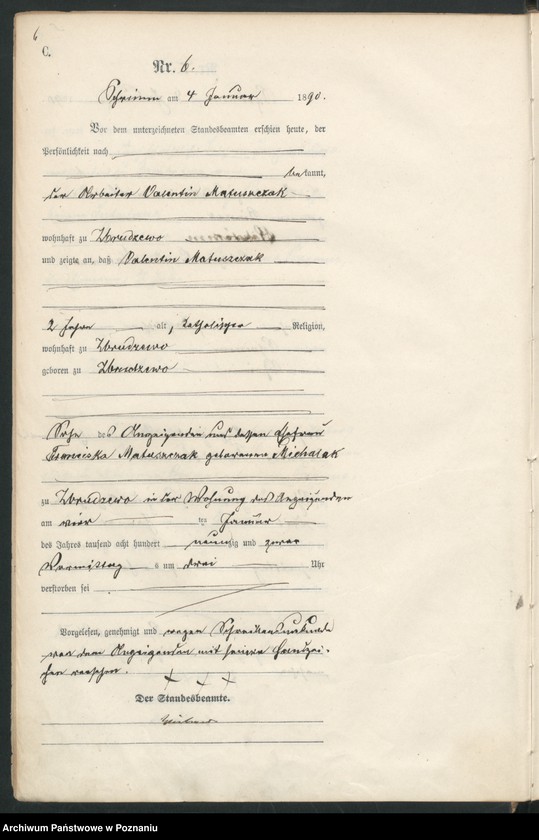 6
C.
Nr. 6.
Schrimm am 4 Januar 1890.
Vor dem unterzeichneten Standesbeamten erschien heute, der
Persönlichkeit nach
bekannt,
der Arbeiter Valentin Matuszczak
wohnhaft zu Zbrudzewo
und zeigte an, daß Valentin Matuszczak
2 Jahre alt, katholischer Religion,
wohnhaft zu Zbrudzewo
geboren zu Zbrudzewo
Sohn des Anzeigenden und dessen Ehefrau
Franciska Matuszczak geborenen Michalak
zu Zbrudzewo in der Wohnung des Anzeigenden
am vier ten Januar
des Jahres tausend acht hundert neunzig und zwar
Vormittag s um drei Uhr
verstorben sei
Vorgelesen, genehmigt und wegen Schreibensunkunde
von dem Anzeigenden mit seinem Handzei-
chen versehen.
+ + +
Der Standesbeamte.
Archiwum Państwowe w Poznaniu